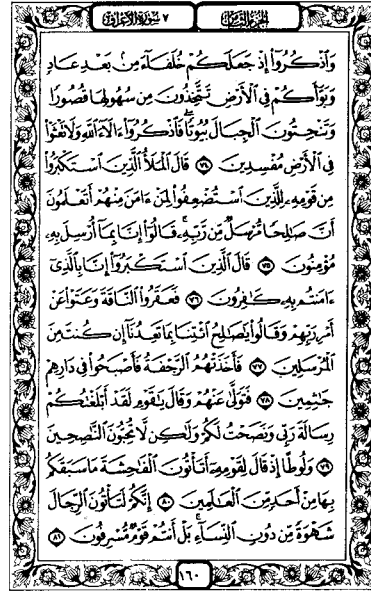 ٧ سورة الأعراف الجزء الثامن
وَاذْكُرُوا إِذْ جَعَلَكُمْ خُلَفَاءَ مِنْ بَعْدِ عَادٍ
وَبَوَّأَكُمْ فِي الْأَرْضِ تَتَّخِذُونَ مِن سُهُولِهَا قُصُورًا
وَتَنْحِتُونَ الْجِبَالَ بُيُوتًا فَاذْكُرُوا ءَالَاءَ اللَّهِ وَلَا تَعْثَوْا
فِي الْأَرْضِ مُفْسِدِينَ ٧٤ قَالَ الْمَلَأُ الَّذِينَ اسْتَكْبَرُوا
مِن قَوْمِهِ لِلَّذِينَ اسْتُضْعِفُوا لِمَنْ ءَامَنَ مِنْهُمْ أَتَعْلَمُونَ
أَنَّ صَالِحًا مُّرْسَلٌ مِّن رَّبِّهِ قَالُوا إِنَّا بِمَا أُرْسِلَ بِهِ
مُؤْمِنُونَ ٧٥ قَالَ الَّذِينَ اسْتَكْبَرُوا إِنَّا بِالَّذِي
ءَامَنتُم بِهِ كَافِرُونَ ٧٦ فَعَقَرُوا النَّاقَةَ وَعَتَوْا عَنْ
أَمْرِ رَبِّهِمْ وَقَالُوا يَاصَالِحُ ائْتِنَا بِمَا تَعِدُنَا إِن كُنتَ مِنَ
الْمُرْسَلِينَ ٧٧ فَأَخَذَتْهُمُ الرَّجْفَةُ فَأَصْبَحُوا فِي دَارِهِمْ
جَاثِمِينَ ٧٨ فَتَوَلَّى عَنْهُمْ وَقَالَ يَاقَوْمِ لَقَدْ أَبْلَغْتُكُمْ
رِسَالَةَ رَبِّي وَنَصَحْتُ لَكُمْ وَلَكِن لَّا تُحِبُّونَ النَّاصِحِينَ
٧٩ وَلُوطًا إِذْ قَالَ لِقَوْمِهِ أَتَأْتُونَ الْفَاحِشَةَ مَا سَبَقَكُم
بِهَا مِنْ أَحَدٍ مِّنَ الْعَالَمِينَ ٨٠ إِنَّكُمْ لَتَأْتُونَ الرِّجَالَ
شَهْوَةً مِّن دُونِ النِّسَاءِ بَلْ أَنتُمْ قَوْمٌ مُّسْرِفُونَ ٨١
١٦٠